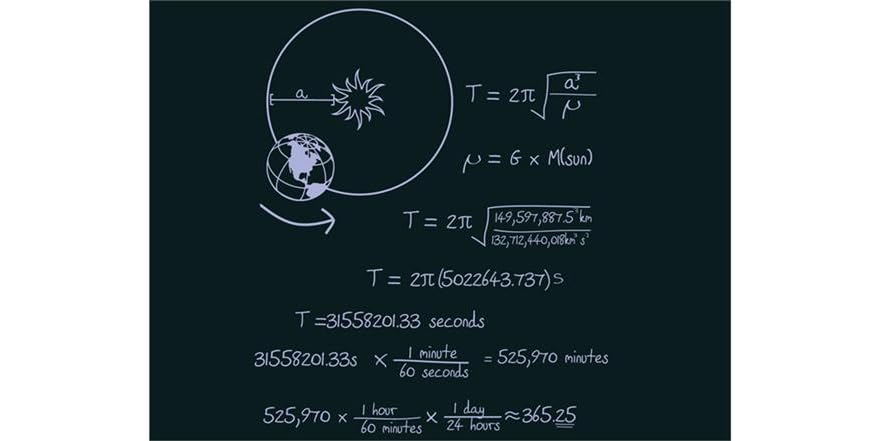 a
T = 2π√(a³/μ)
μ = G x M(sun)
T = 2π√(149,597,887.5³km/132,712,440,018km³s²)
T = 2π(5022643.737)s
T =31558201.33 seconds
31558201.33s × 1 minute/60 seconds = 525,970 minutes
525,970 × 1 hour/60 minutes × 1 day/24 hours ≈365.25